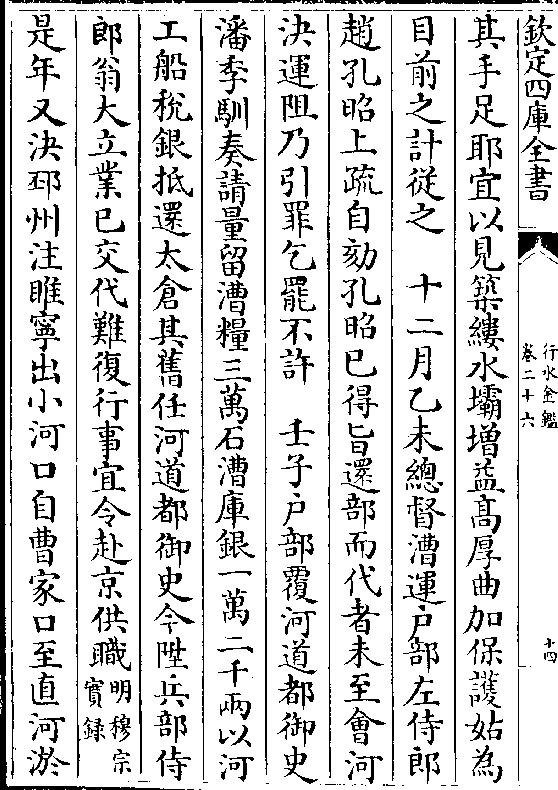 欽定四庫全書
行水金鑑
卷二十六
十四
其手足耶宜以見築縷水壩增益髙厚曲加保護姑為
目前之計從之　十二月乙未總督漕運户部左侍郎
趙孔昭上疏自劾孔昭已得㫖還部而代者未至會河
決運阻乃引罪乞罷不許　壬子户部覆河道都御史
潘季馴奏請量留漕糧三萬石漕庫銀一萬二千兩以河
工船稅銀抵還太倉其舊任河道都御史今陞兵部侍
郎翁大立業已交代難復行事宜令赴京供職明穆宗實録
是年又決邳州注睢寧出小河口自曹家口至直河淤